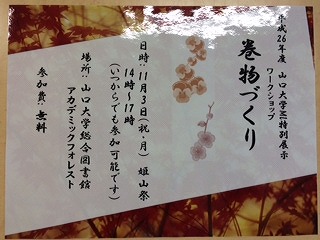 平成26年度 山口大学EXE特別展示
ワークショップ
巻物づくり
日時:11月3日(祝・月) 姫山祭
14時~17時
(いつからでも参加可能です)
場所:山口大学総合図書館
アカデミックフォレスト
参加費:無料